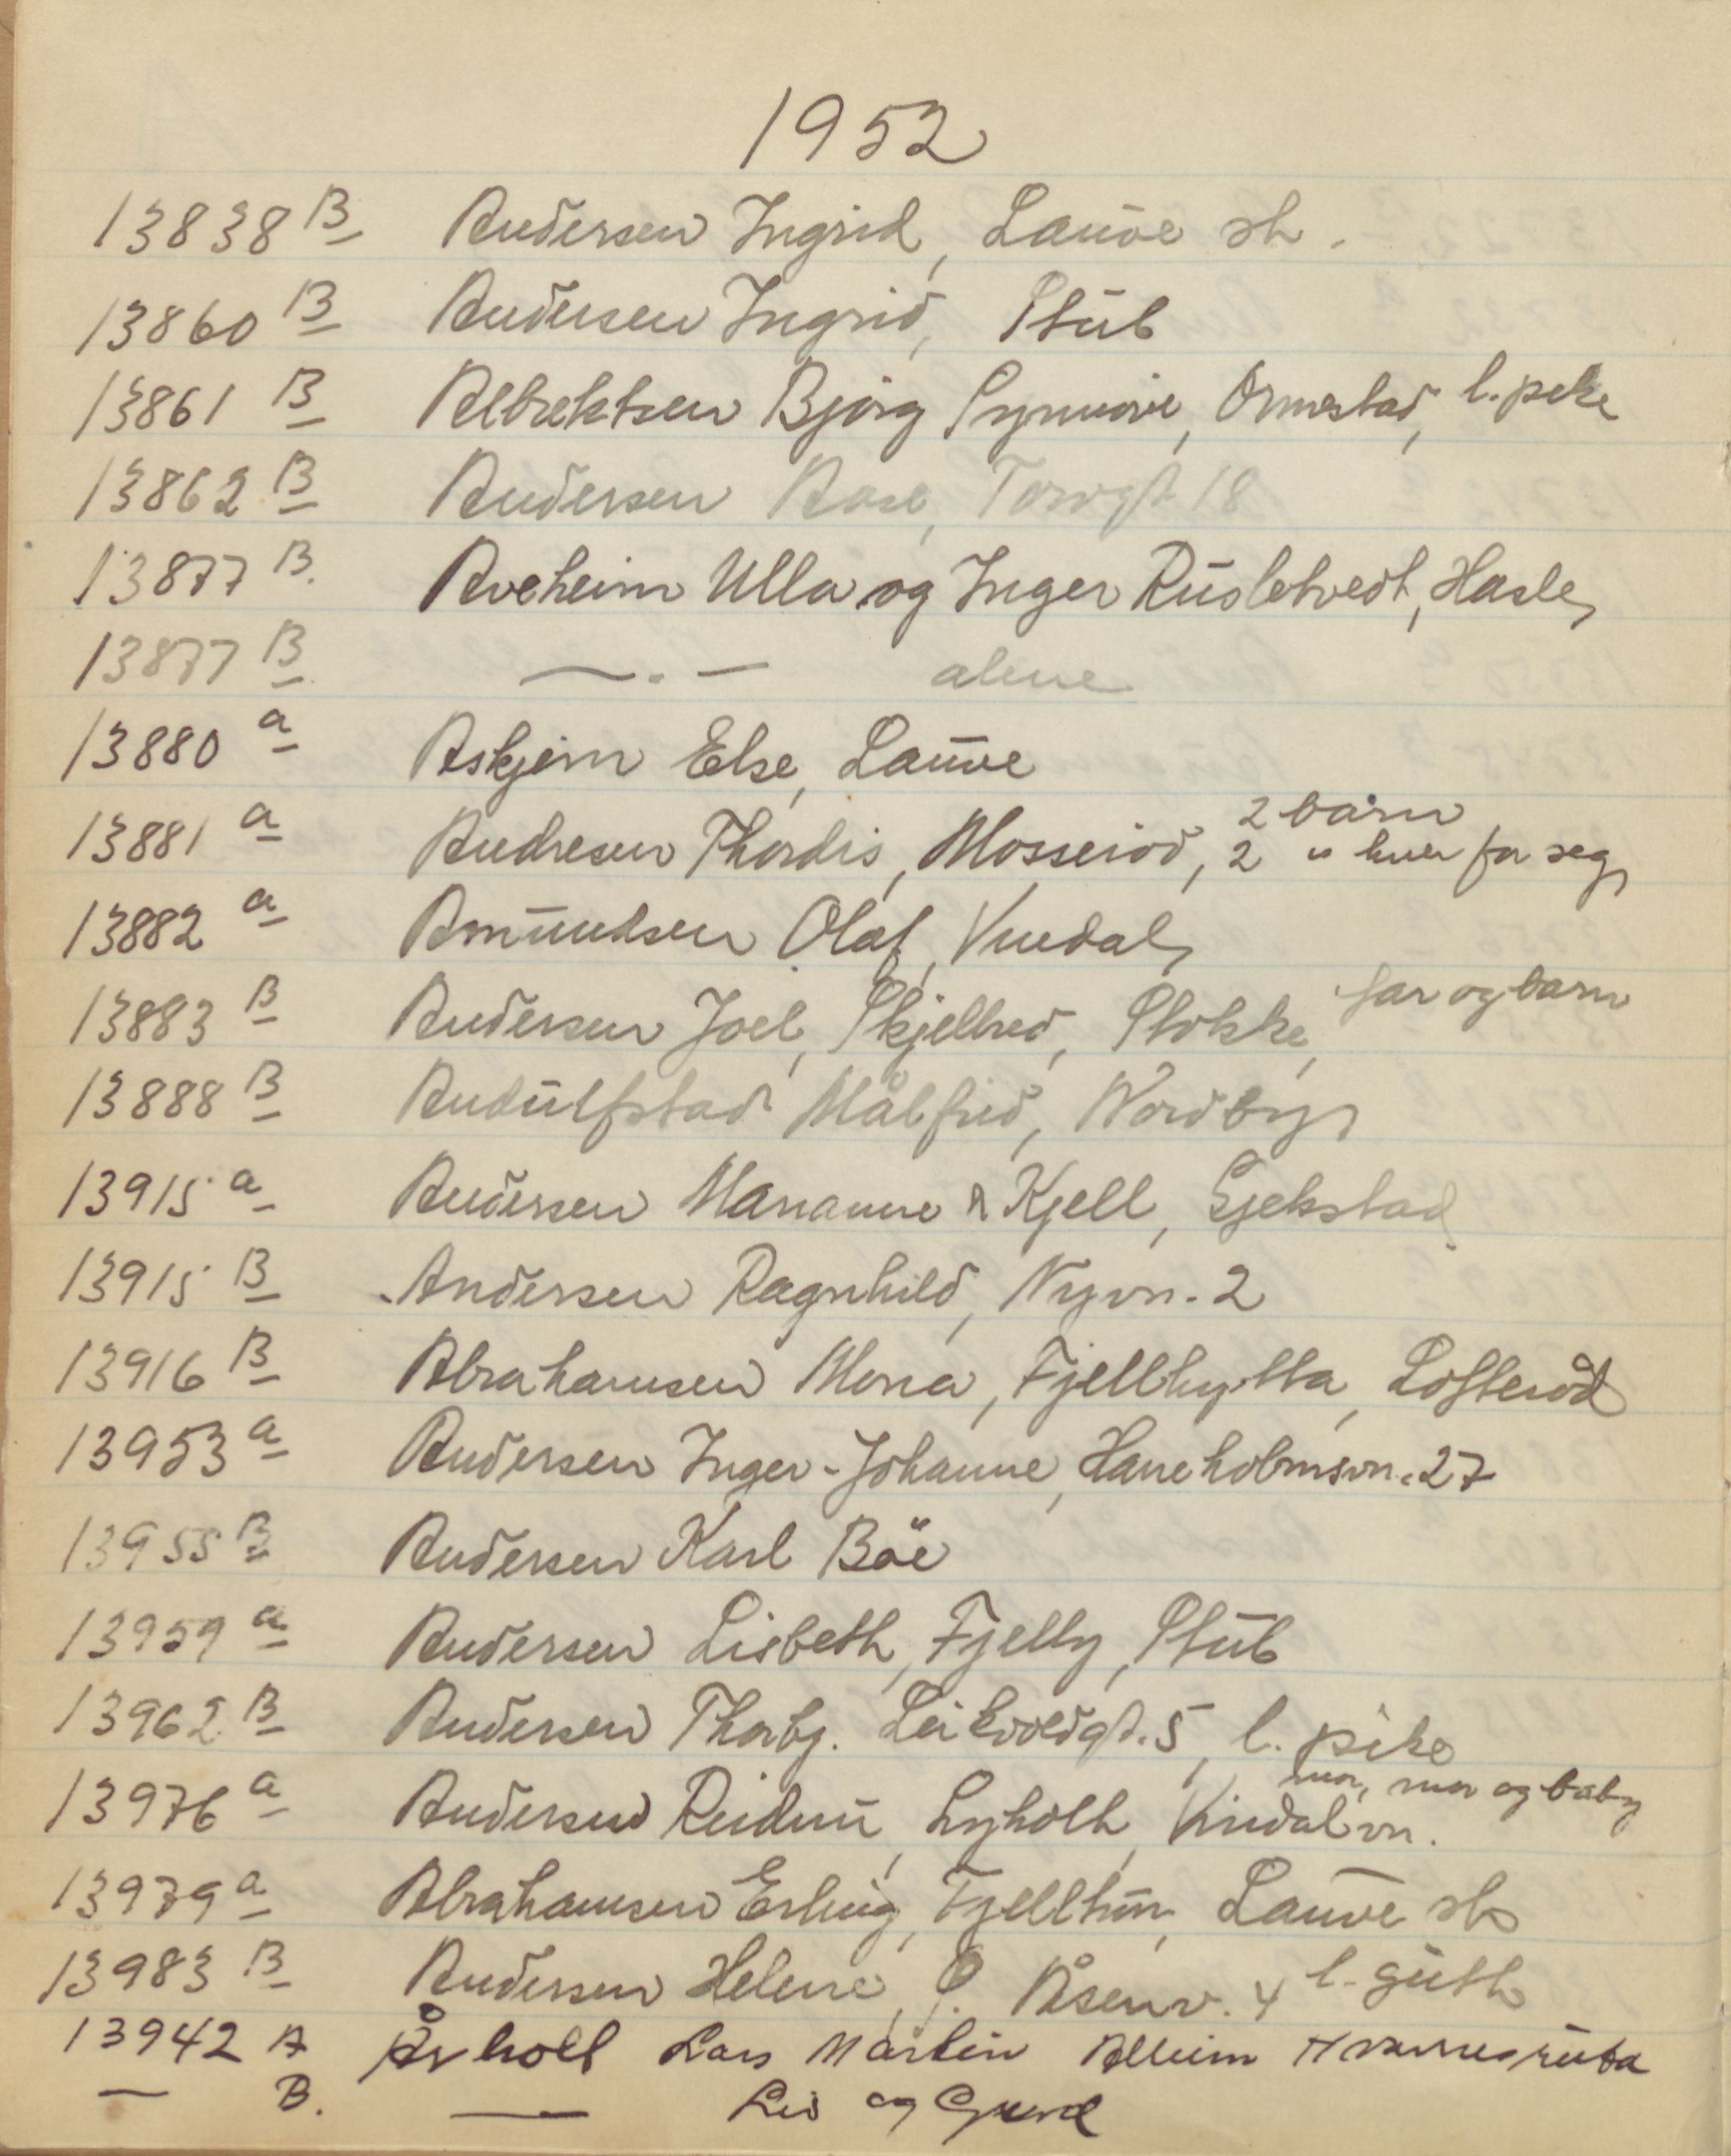 1952
13838 B Andersen Ingrid, Lauve st.
13860 B Andersen Ingrid, Stub
13861 B Albrektsen Bjørg Synnøve, Ormestad, l. pike
13862 B Andersen Aase, Torvgt 18
13877 B. Aveheim Ulla og Inger Rusletvedt, Hasle,
13877 B —.— alene
13880 a Askjem Else, Lauve
13881 a Andresen Thordis, Mosserød, 2 barn
2 " hver for seg
13882 a Amundsen Olaf, Vindal
13883 B Andersen Joel, Skjelbred, Stokke, far og barn
13888 B Andulfstad Målfrid, Nordby
13915 a Andersen Marianne & Kjell, Gjekstad
13915 B Andersen Ragnhild, Nyvn. 2
13916 B Abrahamsen Mona, Fjellhytta, Lofterød
13953 a Andersen Inger-Johanne, Haneholmsvn. 27
13955 B Andersen Karl Bøe
13959 a Andersen Lisbeth, Fjelly, Stub
13962 B Andersen Thorbj. Leikvoldgt. 5, l. pike
13976 a Andersen Reidun, Lyholt, Vindalvn. mor og baby
13979 a Abrahamsen Erling, Fjelltun, Lauve st
13983 B Andersen Helene, Ø. Åsenv. 4 l. gutt
13942 A Årholt Lars Martin Alheim
— B. — Liv og Gurd